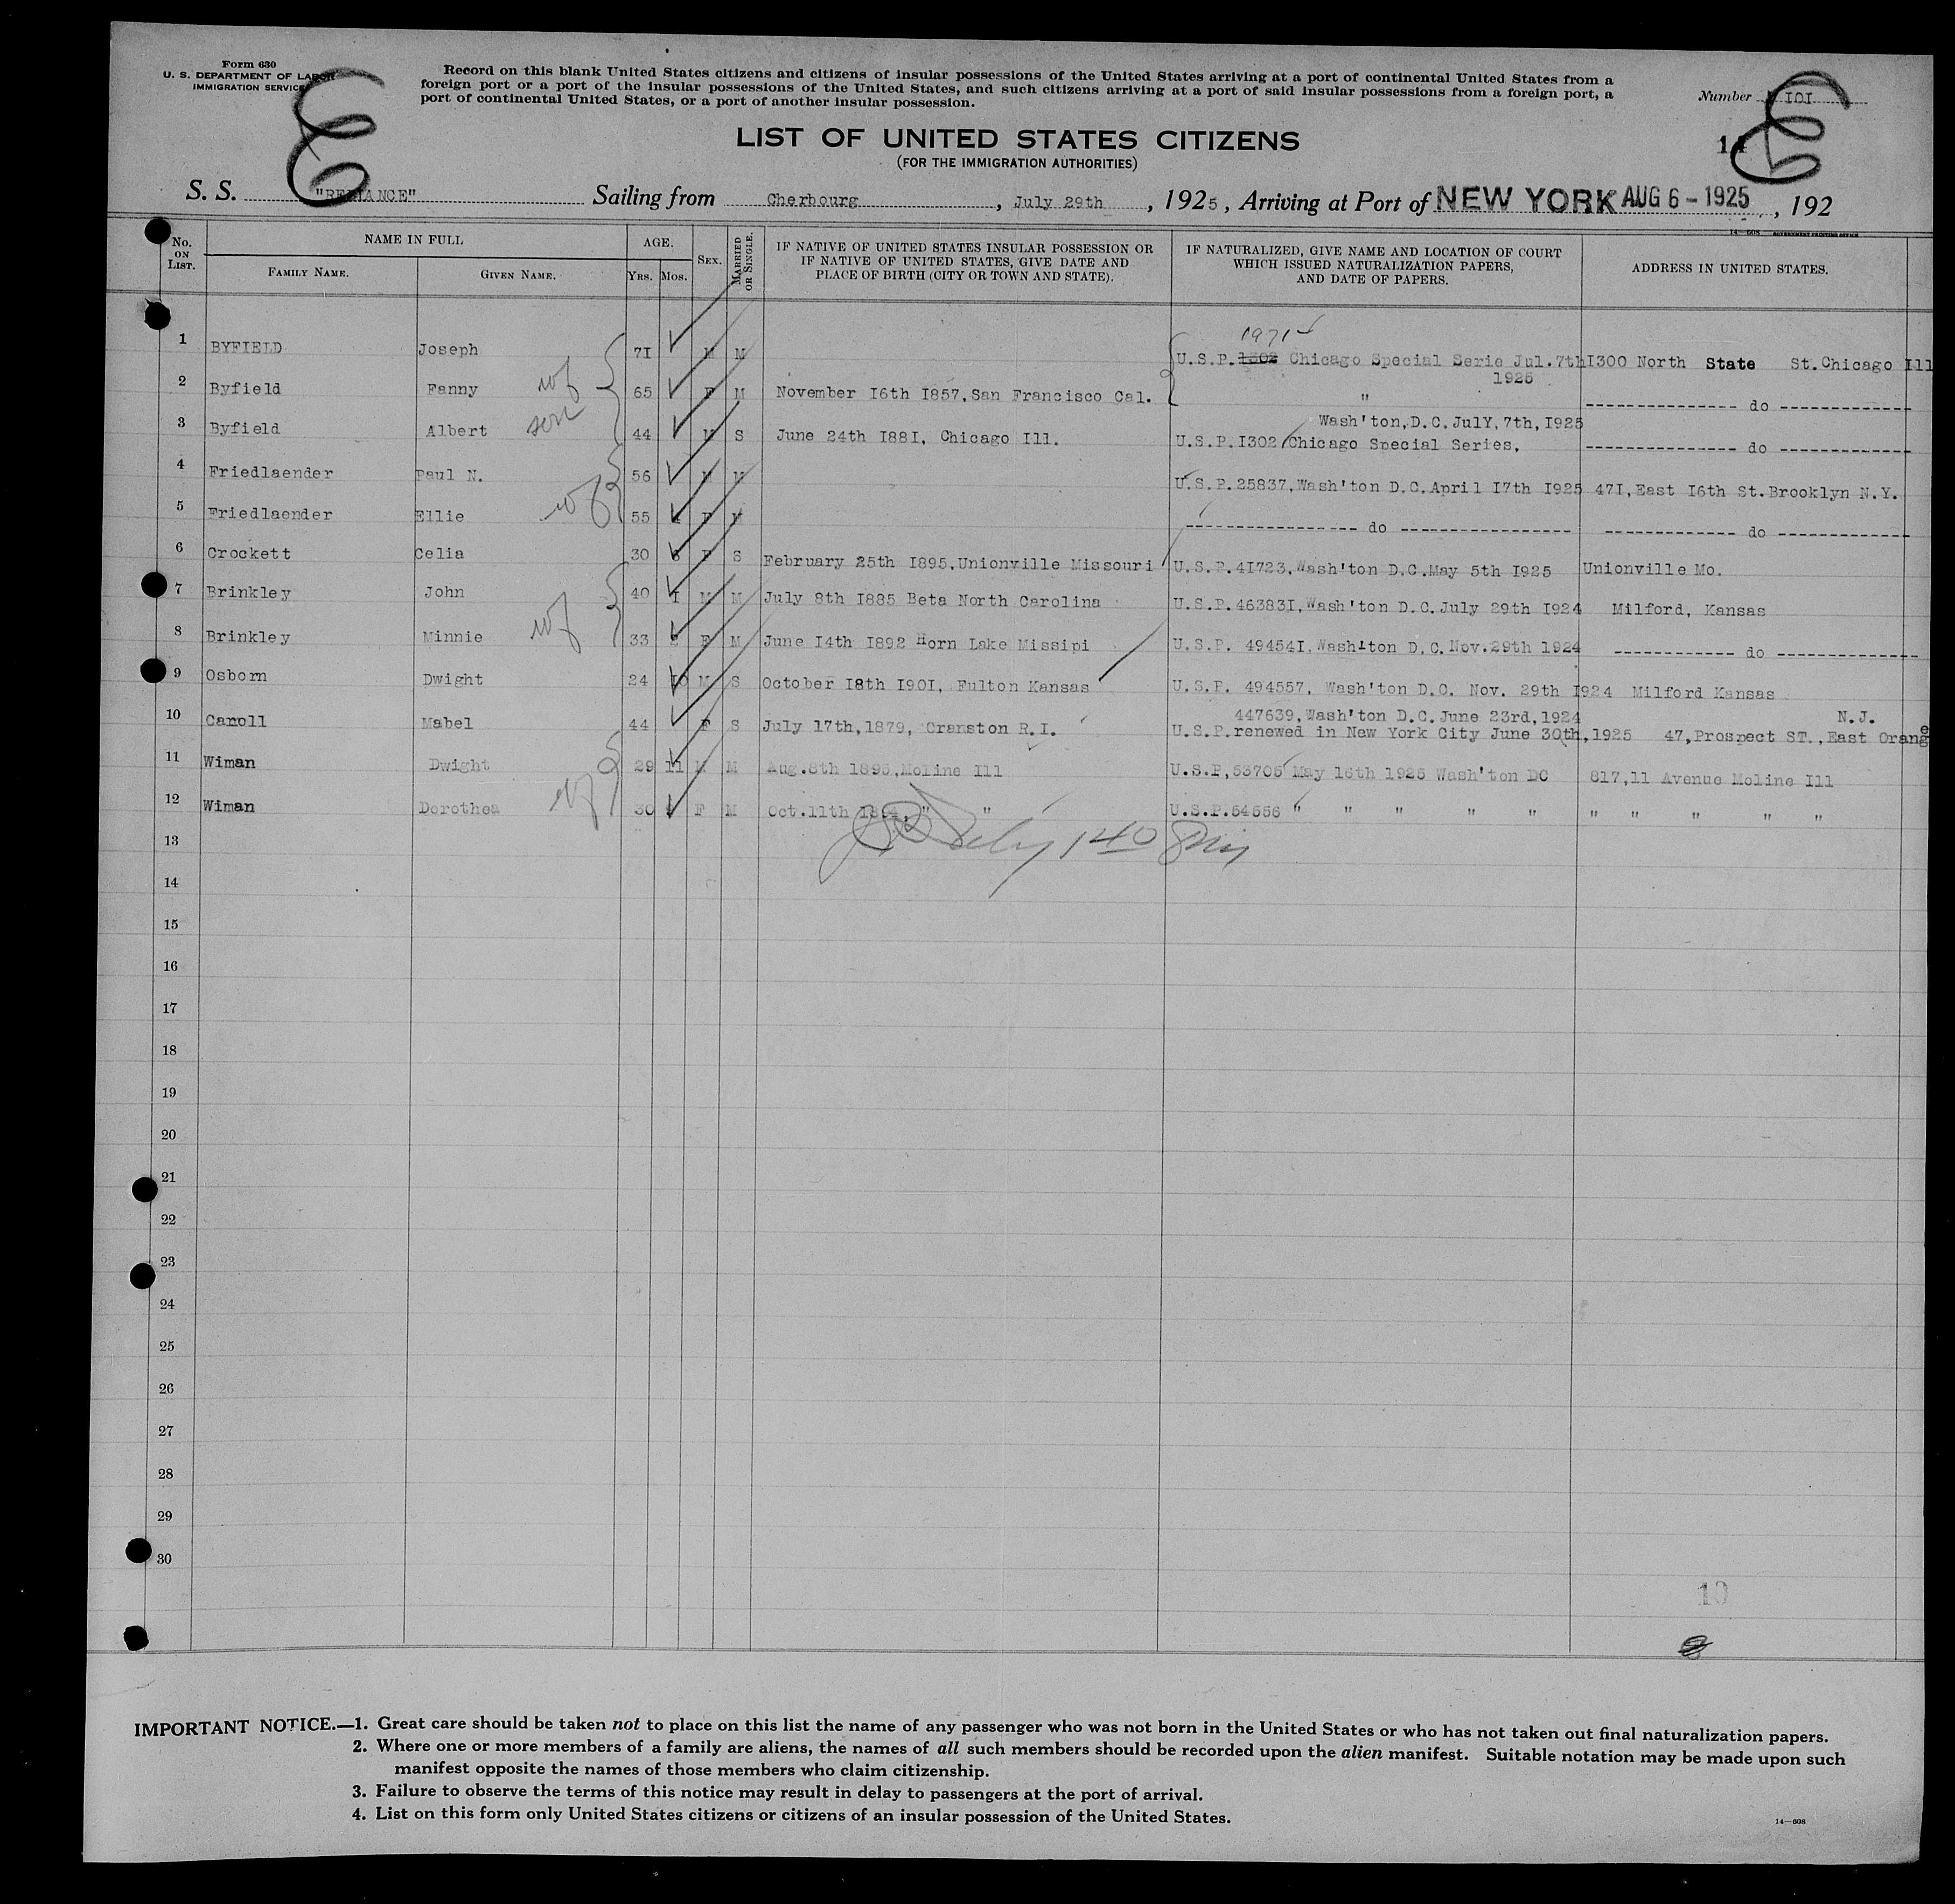 Form 630
U. S. DEPARTMENT OF LABOR
IMMIGRATION SERVICE
Record on this blank United States citizens and citizens of insular possessions of the United States arriving at a port of continental United States from a
foreign port or a port of the insular possessions of the United States, and such citizens arriving at a port of said insular possessions from a foreign port, a
port of continental United States, or a port of another insular possession.
Number IOI
14
LIST OF UNITED STATES CITIZENS
(FOR THE IMMIGRATION AUTHORITIES)
S. S. "RELIANCE" Sailing from Cherbourg, July 29th, 1925, Arriving at Port of NEW YORK AUG 6 - 1925, 192
14—608 GOVERNMENT PRINTING OFFICE
No. ON LIST. NAME IN FULL AGE. SEX. MARRIED OR SINGLE. IF NATIVE OF UNITED STATES INSULAR POSSESSION OR IF NATIVE OF UNITED STATES, GIVE DATE AND PLACE OF BIRTH (CITY OR TOWN AND STATE). IF NATURALIZED, GIVE NAME AND LOCATION OF COURT WHICH ISSUED NATURALIZATION PAPERS, AND DATE OF PAPERS. ADDRESS IN UNITED STATES.
FAMILY NAME. GIVEN NAME. YRS. MOS.
1971
1 BYFIELD Joseph 7I M M U.S.P. 1302 Chicago Special Serie Jul.7th I300 North State St.Chicago Ill
1925
2 Byfield Fanny wf 65 F M November I6th I857,San Francisco Cal. " do
Wash'ton,D.C.JulY,7th,I925
3 Byfield Albert son 44 M S June 24th I88I, Chicago Ill. U.S.P.I302 Chicago Special Series, do
4 Friedlaender Paul N. 56 M M U.S.P.25837,Wash'ton D.C.April I7th I925 47I,East I6th St.Brooklyn N.Y.
5 Friedlaender Ellie wf 55 F M do do
6 Crockett Celia 30 F S February 25th I895,Unionville Missouri U.S.P.4I723,Wash'ton D.C.May 5th I925 Unionville Mo.
7 Brinkley John 40 I M M July 8th I885 Beta North Carolina U.S.P.46383I,Wash'ton D.C.July 29th I924 Milford, Kansas
8 Brinkley Minnie wf 33 F M June I4th I892 Horn Lake Missipi U.S.P. 49454I,Wash'ton D.C.Nov.29th 1924 do
9 Osborn Dwight 24 10 M S October I8th I90I, Fulton Kansas U.S.P. 494557, Wash'ton D.C. Nov. 29th I924 Milford Kansas
447639,Wash'ton D.C.June 23rd,1924 N.J.
10 Caroll Mabel 44 F S July 17th,1879, Cranston R.I. U.S.P.renewed in New York City June 30th,1925 47,Prospect ST.,East Orange
11 Wiman Dwight 29 11 M M Aug.8th 1895,Moline Ill U.S.P,53705 May 16th 1925 Wash'ton DC 817,11 Avenue Moline Ill
12 Wiman Dorothea wf 30 F M Oct.11th 1894, " " U.S.P.54556 " " " " " " " " " "
13
14
15
16
17
18
19
20
21
22
23
24
25
26
27
28
29
30
10
IMPORTANT NOTICE.—1. Great care should be taken not to place on this list the name of any passenger who was not born in the United States or who has not taken out final naturalization papers.
2. Where one or more members of a family are aliens, the names of all such members should be recorded upon the alien manifest. Suitable notation may be made upon such
manifest opposite the names of those members who claim citizenship.
3. Failure to observe the terms of this notice may result in delay to passengers at the port of arrival.
4. List on this form only United States citizens or citizens of an insular possession of the United States.
14—608